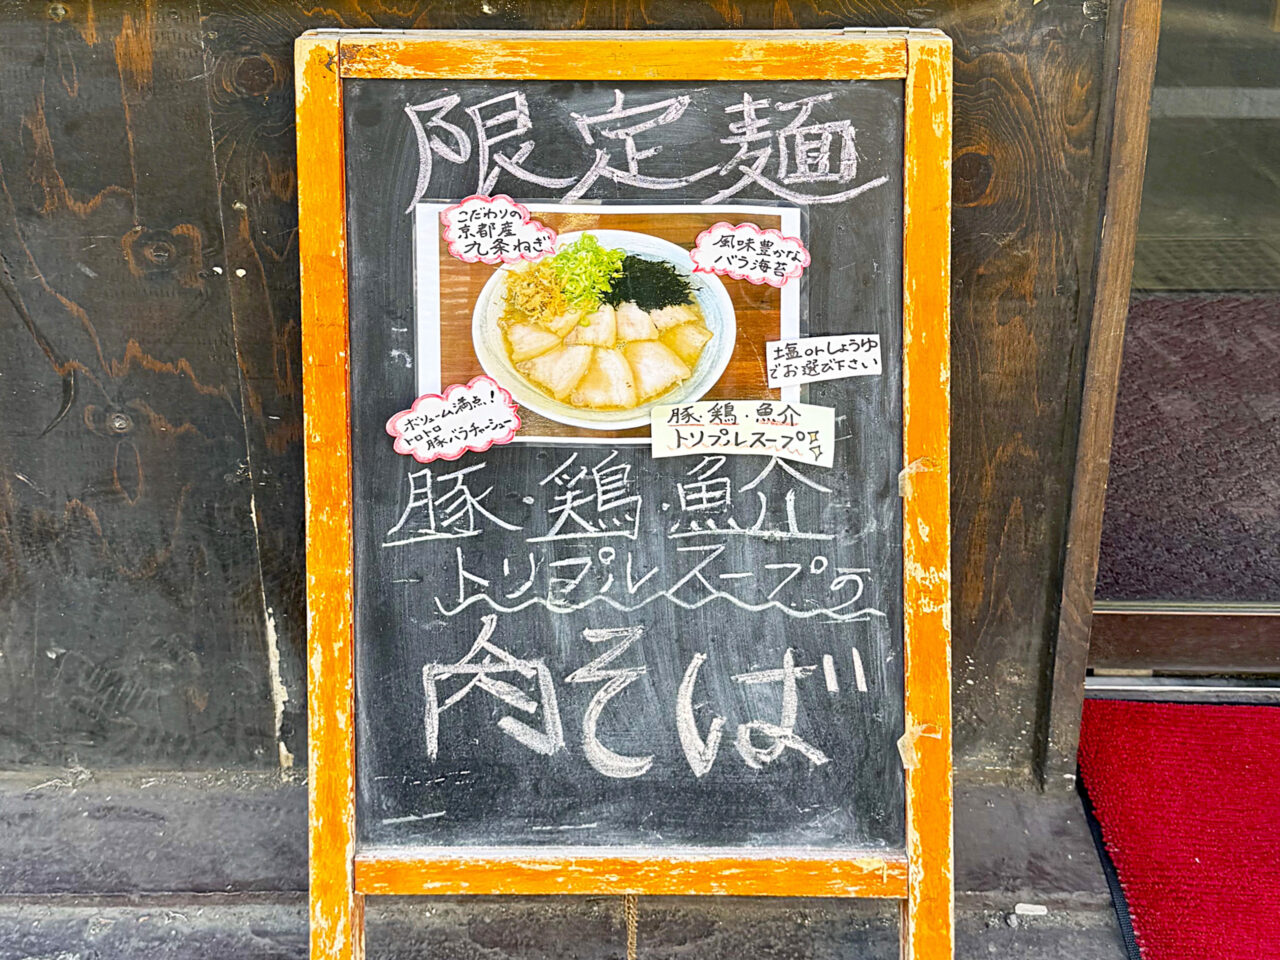 限定麺
こだわりの
京都産
九条ねぎ
風味豊かな
バラ海苔
塩orしょうゆ
でお選び下さい
ボリューム満点!
トロトロ
豚バラチャーシュー
豚・鶏・魚介
トリプルスープ
豚・鶏・魚介
トリプルスープの
肉そば